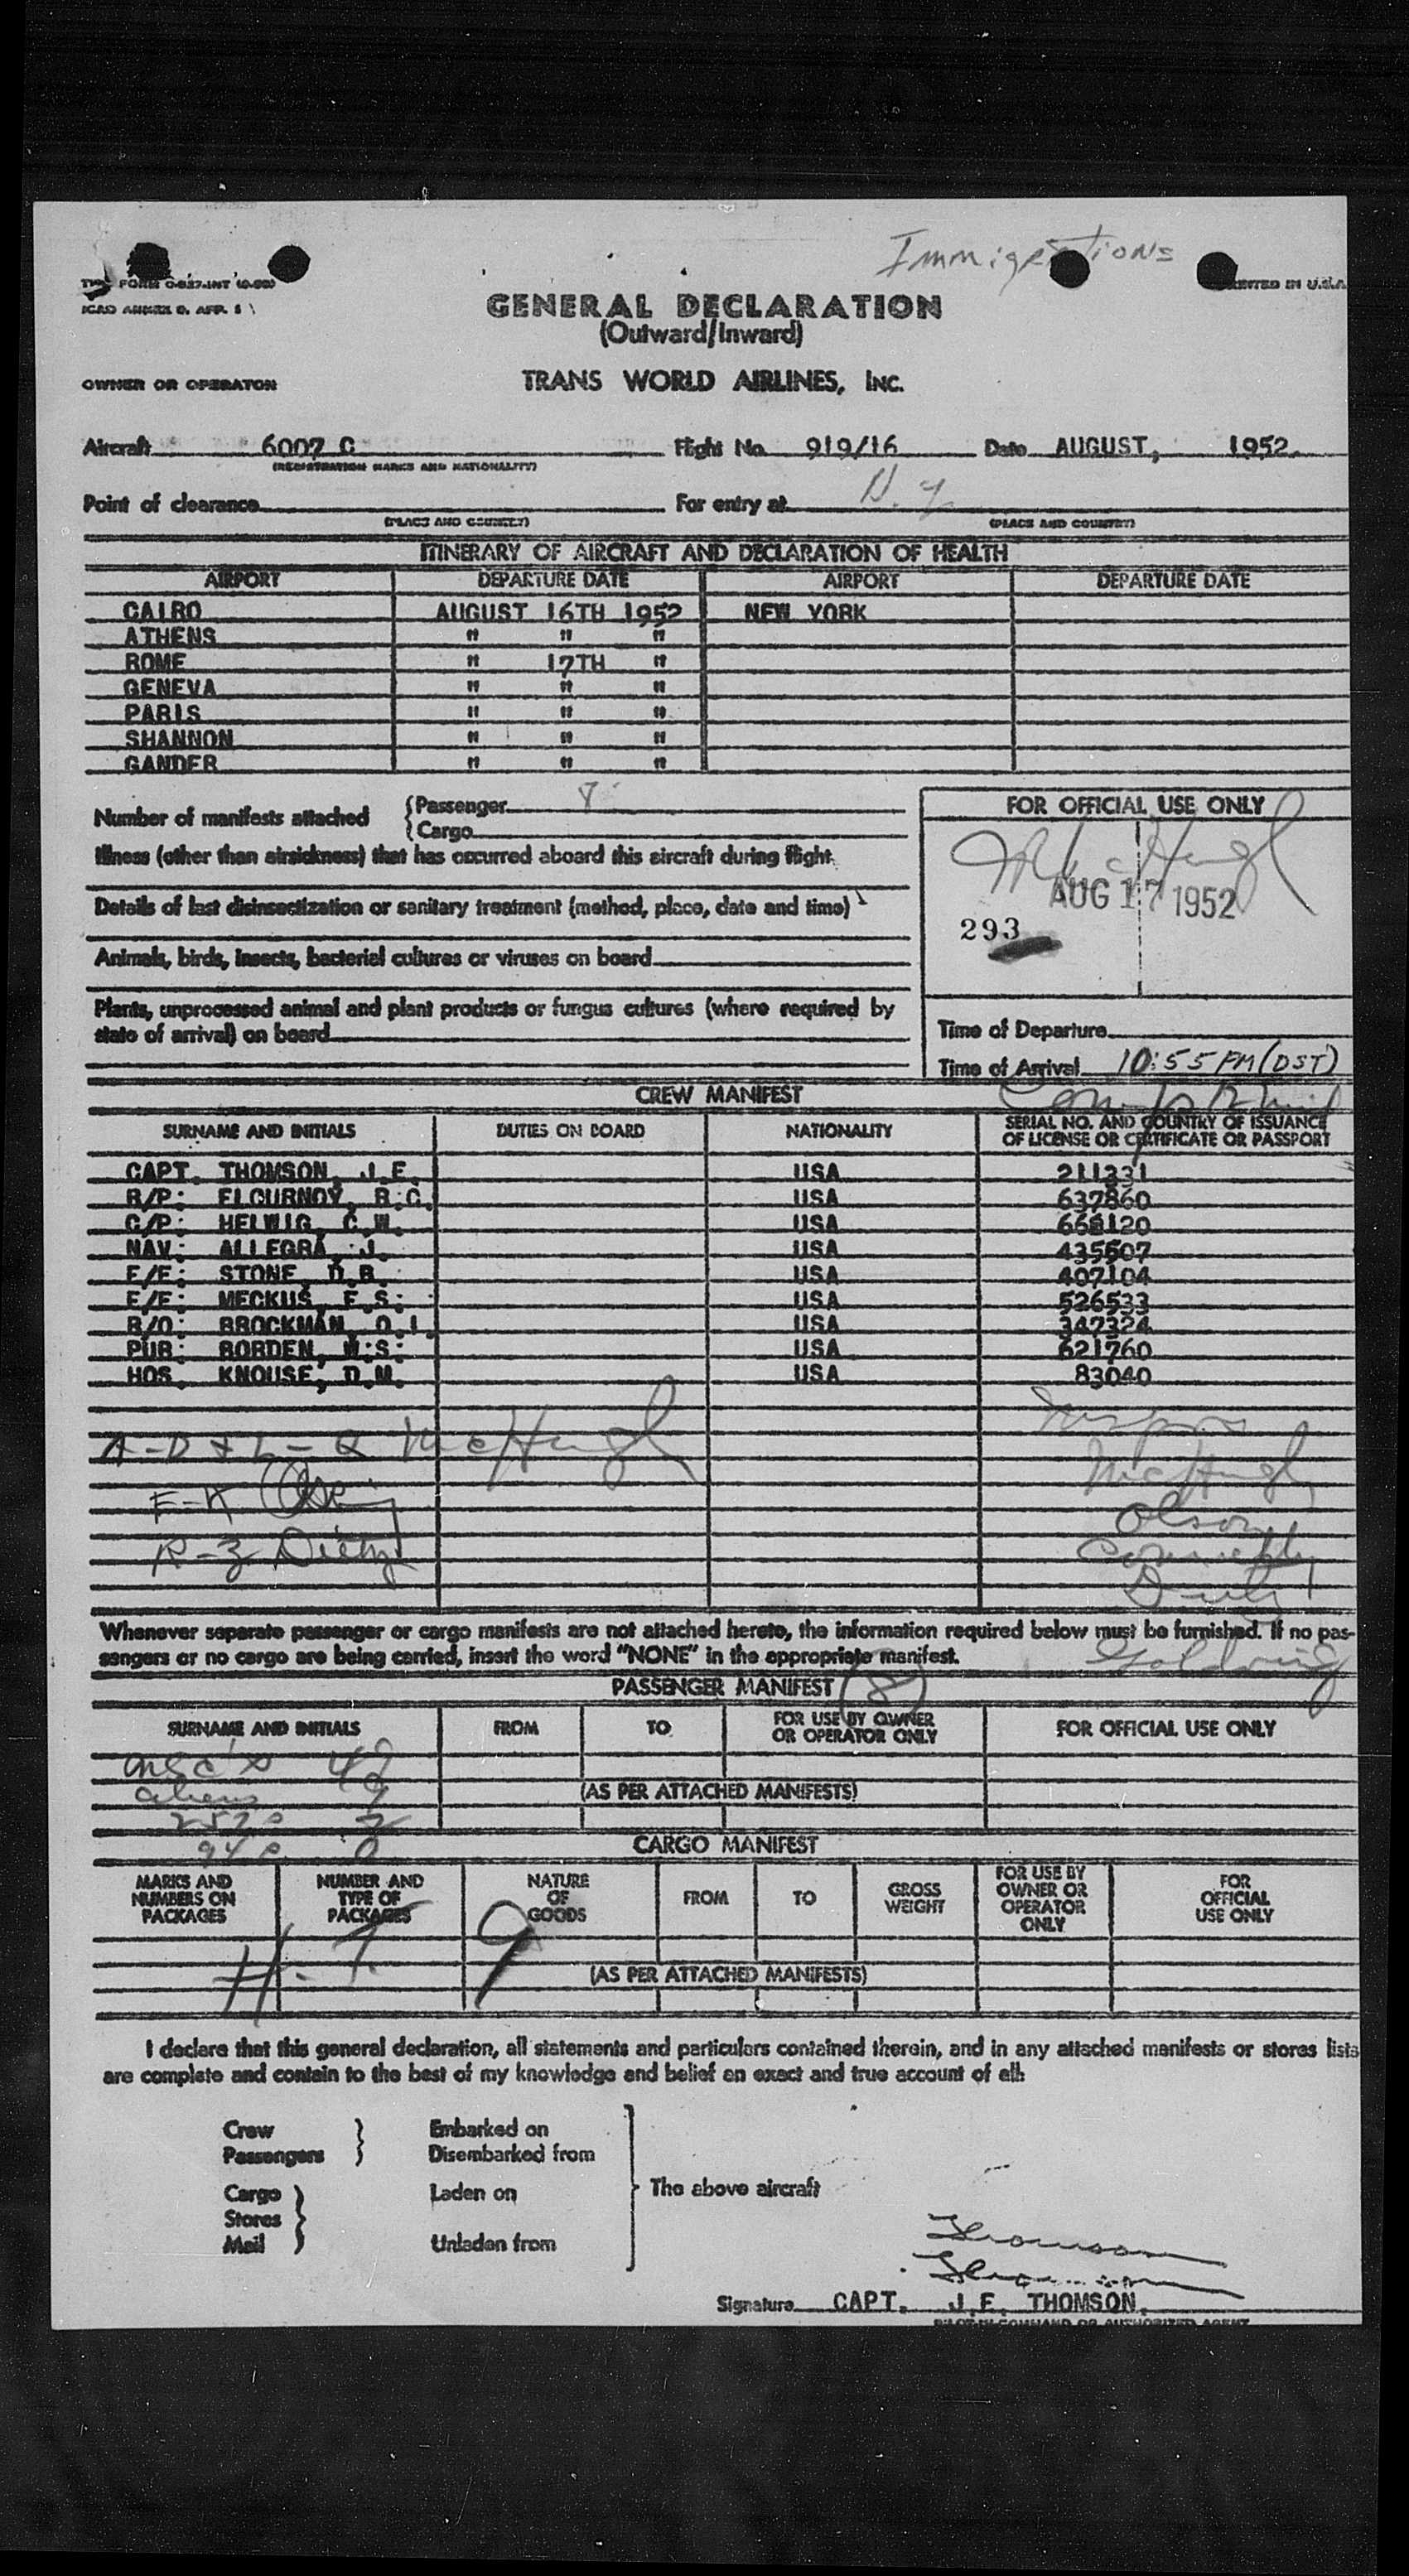 Immigrations
TWA FORM O-837-INT
ICAO ANNEX 9. APP. 1
PRINTED IN U.S.A.
GENERAL DECLARATION
(Outward/Inward)
OWNER OR OPERATOR TRANS WORLD AIRLINES, INC.
Aircraft 6007 C Flight No. 919/16 Date AUGUST, 1952.
(REGISTRATION MARKS AND NATIONALITY)
Point of clearance For entry at N.Y.
(PLACE AND COUNTRY) (PLACE AND COUNTRY)
ITINERARY OF AIRCRAFT AND DECLARATION OF HEALTH
AIRPORT DEPARTURE DATE AIRPORT DEPARTURE DATE
CAIRO AUGUST 16TH 1952 NEW YORK
ATHENS " " "
ROME " 17TH "
GENEVA " " "
PARIS " " "
SHANNON " " "
GANDER " " "
Number of manifests attached { Passenger 8
{ Cargo
Illness (other than airsickness) that has occurred aboard this aircraft during flight.
Details of last disinsectization or sanitary treatment (method, place, date and time)
Animals, birds, insects, bacterial cultures or viruses on board
Plants, unprocessed animal and plant products or fungus cultures (where required by
state of arrival) on board
FOR OFFICIAL USE ONLY
McHugh
AUG 17 1952
293
Time of Departure
Time of Arrival 10:55 PM (DST)
CREW MANIFEST
SURNAME AND INITIALS DUTIES ON BOARD NATIONALITY SERIAL NO. AND COUNTRY OF ISSUANCE
OF LICENSE OR CERTIFICATE OR PASSPORT
CAPT. THOMSON, J.E. USA 211331
R/P: FLOURNOY, B.C. USA 637860
C/P: HELWIG, C.W. USA 668120
NAV: ALLEGRA, J. USA 435507
F/E: STONE, D.B. USA 407104
F/E: MECKUS, E.S: USA 526533
R/O: BROCKMAN, O.L. USA 347324
PUR: BORDEN, W:S: USA 621760
HOS. KNOUSE, D.M. USA 83040
A-D & L-Q McHugh
McHugh
E-K
Olson
R-Z Dietz
Whenever separate passenger or cargo manifests are not attached hereto, the information required below must be furnished. If no pas-
sengers or no cargo are being carried, insert the word "NONE" in the appropriate manifest.
PASSENGER MANIFEST (8)
SURNAME AND INITIALS FROM TO FOR USE BY OWNER
OR OPERATOR ONLY FOR OFFICIAL USE ONLY
aliens
(AS PER ATTACHED MANIFESTS)
CARGO MANIFEST
MARKS AND
NUMBERS ON
PACKAGES
NUMBER AND
TYPE OF
PACKAGES
NATURE
OF
GOODS
FROM TO GROSS
WEIGHT
FOR USE BY
OWNER OR
OPERATOR
ONLY
FOR
OFFICIAL
USE ONLY
(AS PER ATTACHED MANIFESTS)
I declare that this general declaration, all statements and particulars contained therein, and in any attached manifests or stores lists
are complete and contain to the best of my knowledge and belief an exact and true account of all:
Crew Embarked on
Passengers Disembarked from
Cargo Laden on The above aircraft
Stores
Mail Unladen from
Thomson
Signature CAPT. J.E. THOMSON.
PILOT-IN-COMMAND OR AUTHORIZED AGENT